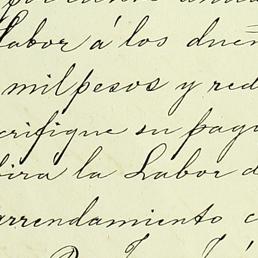 Labor á los due
mil pesos y red
erifique su pag
bira la Labor d
arrendamiento c